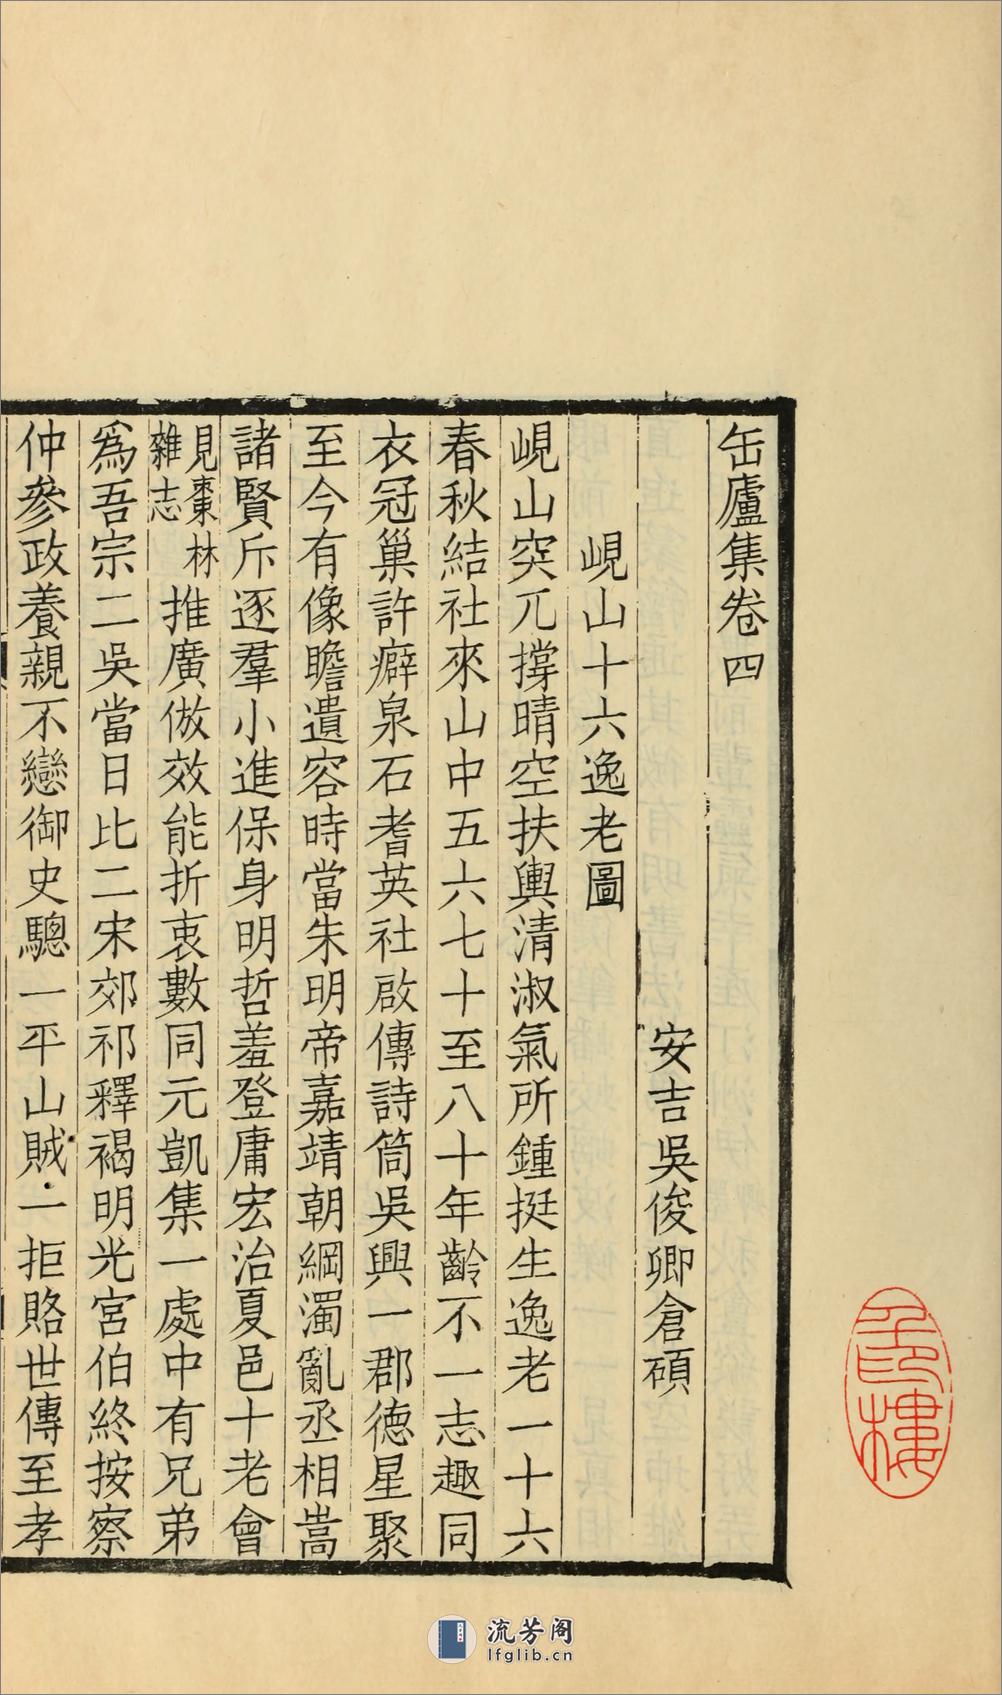 缶廬集卷四
安吉吳俊卿倉碩
峴山十六逸老圖
峴山突兀撐晴空扶輿清淑氣所鍾挺生逸老一十六
春秋結社來山中五六七十至八十年齡不一志趣同
衣冠巢許癖泉石耆英社啟傳詩筒吳興一郡德星聚
至今有像瞻遺容時當朱明帝嘉靖朝綱濁亂丞相嵩
諸賢斥逐羣小進保身明哲羞登庸宏治夏邑十老會
見棗林
雜志
推廣倣效能折衷數同元凱集一處中有兄弟
為吾宗二吳當日比二宋郊祁釋褐明光宮伯終按察
仲參政養親不戀御史驄一平山賊一拒賂世傳至孝
流芳阁
lfglib.cn